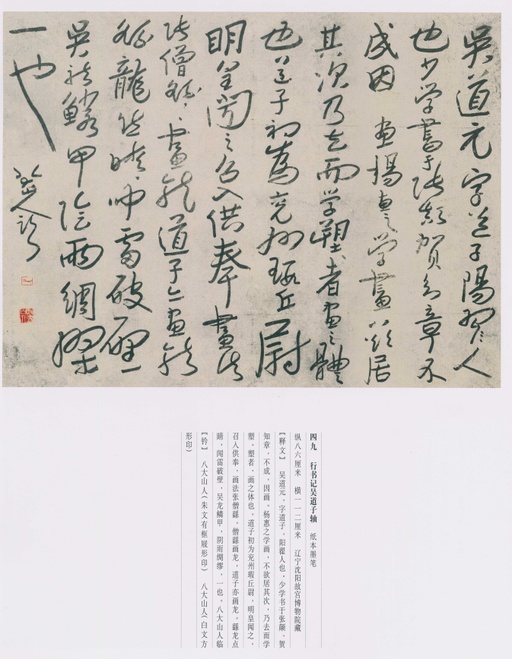 吴道元字道子陽翟人
也少学書于張顛賀知章不
成因畫楊惠之学畫不欲居
其次乃去而学塑塑者畫之體
也道子初為兖州瑕丘尉
明皇闻之召入供奉畫法
張僧繇繇畫龙道子亦畫龙
繇龍点睛闻雷破壁
吴龙鳞甲陰雨綢繆
一也
八大山人临
四九 行书记吴道子轴 纸本墨笔
纵八六厘米 横一一二厘米 辽宁沈阳故宫博物院藏
【释文】 吴道元，字道子，阳翟人也，少学书于张颠、贺
知章，不成，因画，杨惠之学画，不欲居其次，乃去而学
塑，塑者，画之体也，道子初为兖州瑕丘尉，明皇闻之，
召入供奉，画法张僧繇，僧繇画龙，道子亦画龙，繇龙点
睛，闻雷破壁，吴龙鳞甲，阴雨绸缪，一也，八大山人临
【钤】 八大山人（朱文有框屐形印） 八大山人（白文方
形印）